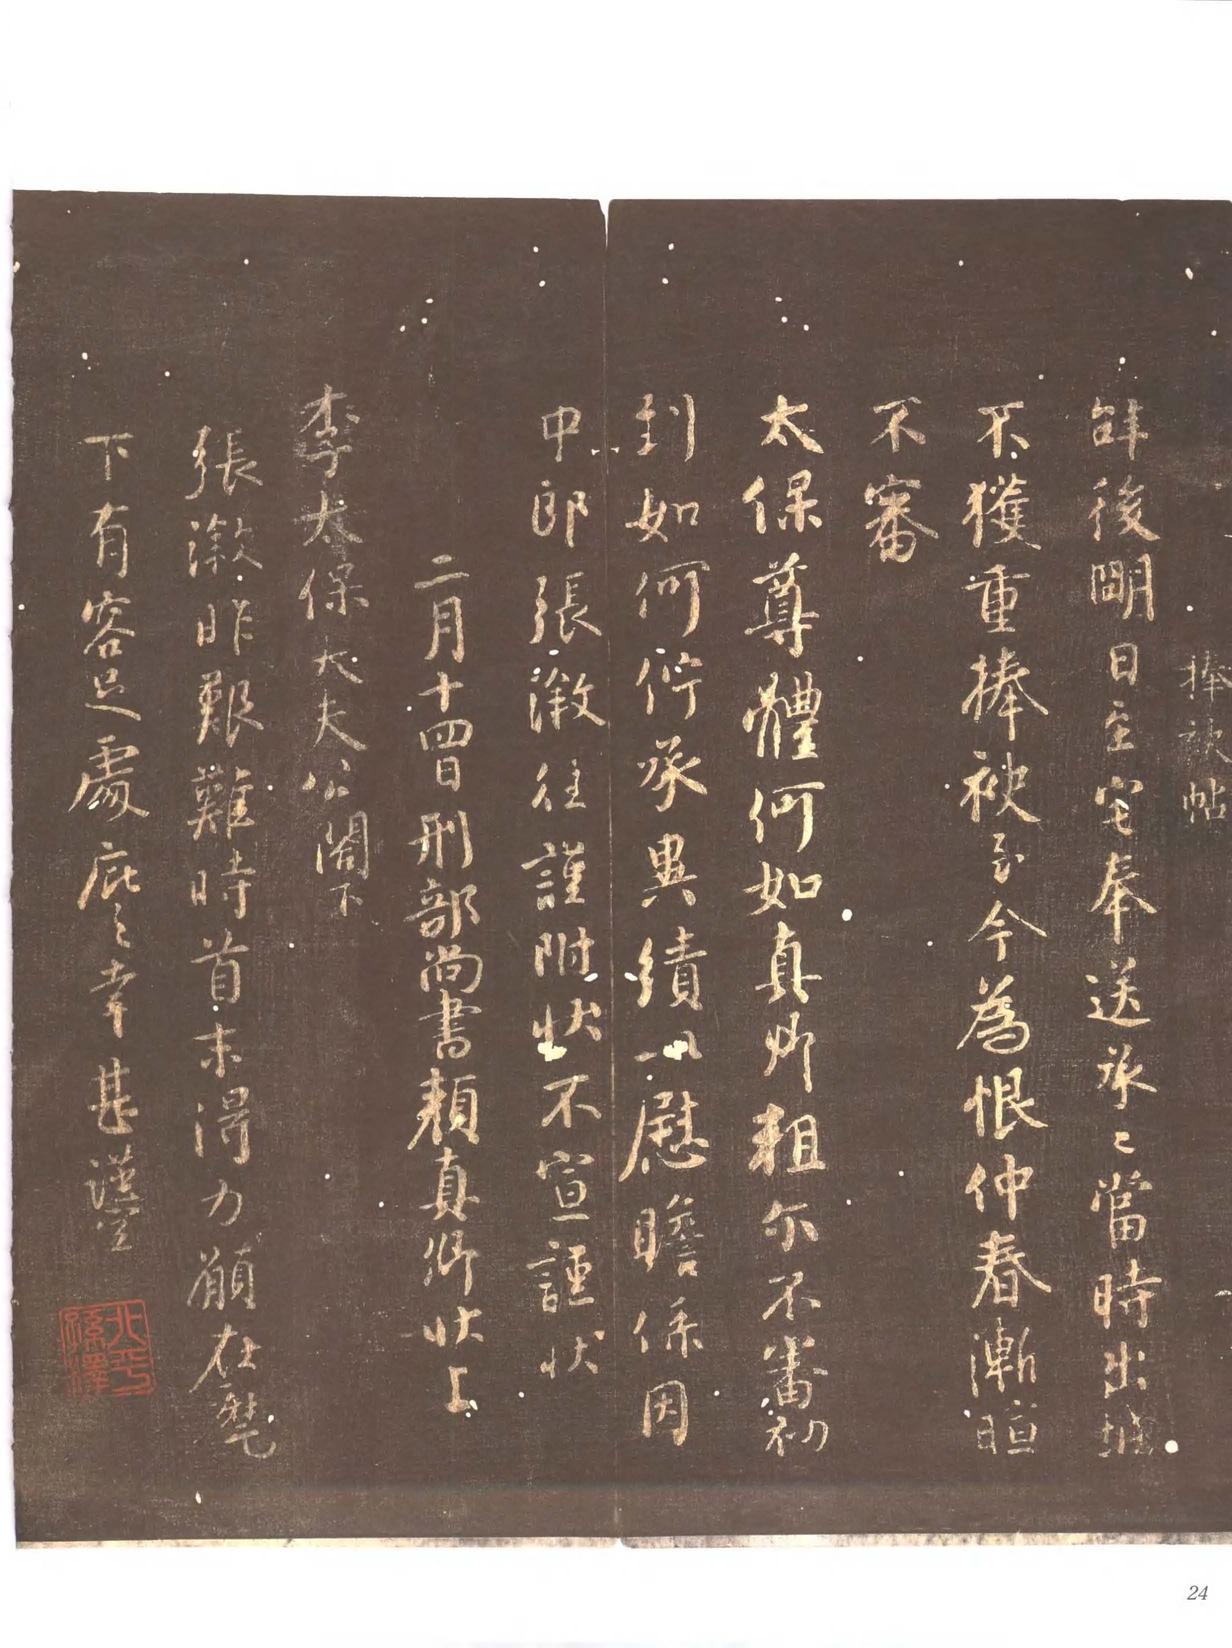 捧袂帖
辞後明日至宅奉送承〻當時出城
不獲重捧袂至今為恨仲春漸暄
不審
太保尊體何如真卿粗尔不審初
到如何佇承異績以慰瞻係因
中郎張澂往謹附狀不宣謹狀
二月十四日刑部尚書顏真卿狀上
李太保大夫公閤下
張澂昨艱難時首末得力願在麾
下有容足處庇之幸甚謹空
北平孫澤
24